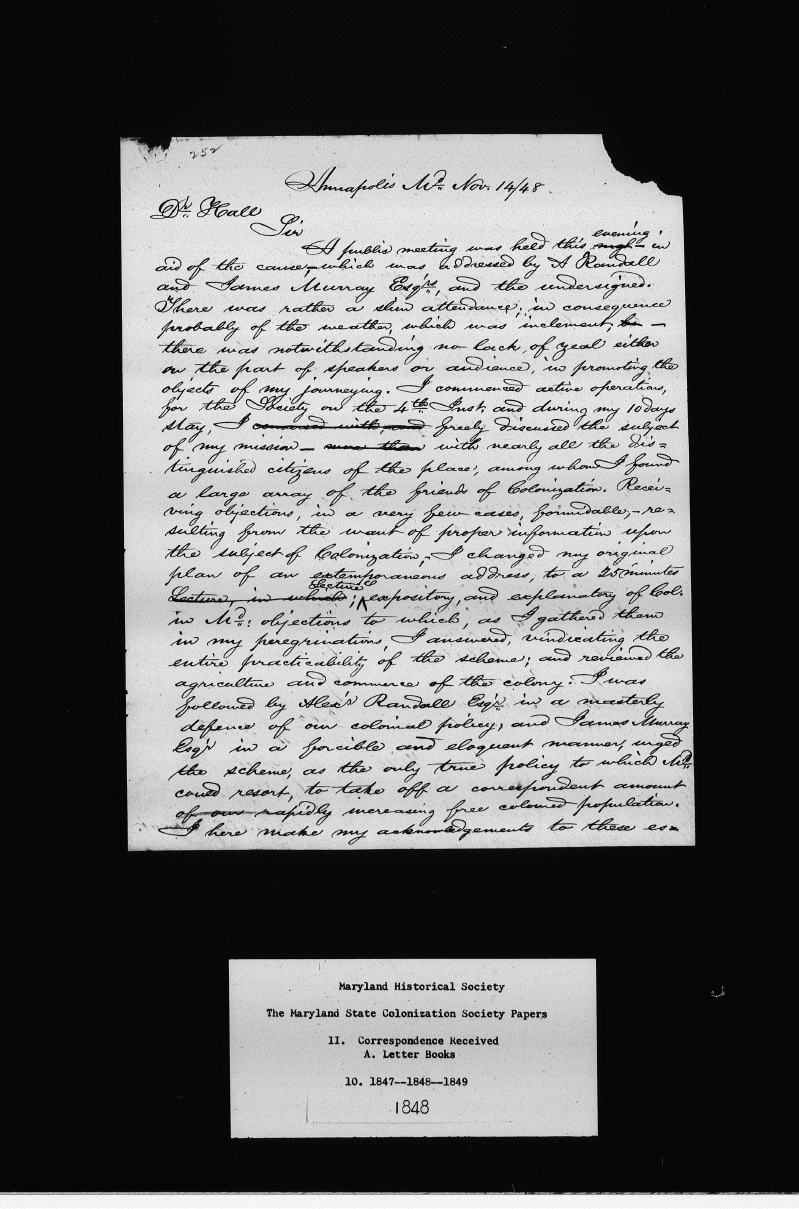 252
Annapolis Md. Nov. 14/48
Dr. Hall
Sir
evening
A public meeting was held this nigh - in
aid of the cause, which was addressed by A Randall
and James Murray Esqrs, and the undersigned.
There was rather a slim attendance; in consequence
probably of the weather, which was inclement, -
there was notwithstanding no lack of zeal either
on the part of speakers or audience, in promoting the
objects of my journeying. I commenced active operations,
for the Society on the 4th Inst. and during my 10 days
stay, I conversed with, and freely discussed the subject
of my mission - more than with nearly all the dis=
tinguished citizens of the place; among whom I found
a large array of the friends of Colonization. Recei=
ving objections, in a very few cases, formidable, - re=
sulting from the want of proper information upon
the subject of Colonization, - I changed my original
plan of an extemporaneous address, to a 25 minutes
Lecture
Lecture, in which; ^ expository, and explanatory of Col.
in Md: objections to which, as I gathered them
in my peregrinations, I answered, vindicating the
entire practicability of the scheme; and reviewed the
agriculture and commerce of the colony. I was
followed by Alex'r Randall Esq'r in a masterly
defence of our colonial policy; and James Murray
Esq'r in a forcible and eloquent manner, urged
the scheme, as the only true policy to which Md.
could resort, to take off a correspondent amount
of our rapidly increasing free colored population.
I here make my acknowledgements to these es=
Maryland Historical Society
The Maryland State Colonization Society Papers
II. Correspondence Received
A. Letter Books
10. 1847--1848--1849
1848